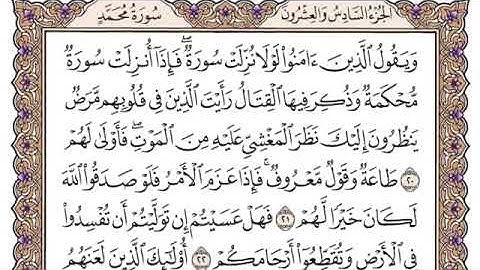 الجزء السادس والعشرون
سورة محمد
وَيَقُولُ ٱلَّذِينَ ءَامَنُوا۟ لَوْلَا نُزِّلَتْ سُورَةٌۖ فَإِذَآ أُنزِلَتْ سُورَةٌ
مُّحْكَمَةٌ وَذُكِرَ فِيهَا ٱلْقِتَالُ رَأَيْتَ ٱلَّذِينَ فِى قُلُوبِهِم مَّرَضٌ
يَنظُرُونَ إِلَيْكَ نَظَرَ ٱلْمَغْشِىِّ عَلَيْهِ مِنَ ٱلْمَوْتِۖ فَأَوْلَىٰ لَهُمْ
٢٠ طَاعَةٌ وَقَوْلٌ مَّعْرُوفٌۚ فَإِذَا عَزَمَ ٱلْأَمْرُ فَلَوْ صَدَقُوا۟ ٱللَّهَ
لَكَانَ خَيْرًا لَّهُمْ ٢١ فَهَلْ عَسَيْتُمْ إِن تَوَلَّيْتُمْ أَن تُفْسِدُوا۟
فِى ٱلْأَرْضِ وَتُقَطِّعُوٓا۟ أَرْحَامَكُمْ ٢٢ أُو۟لَٰٓئِكَ ٱلَّذِينَ لَعَنَهُمُ